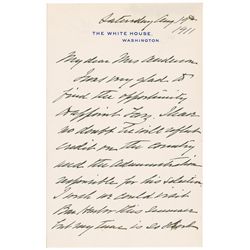 Saturday Aug 19th
1911
THE WHITE HOUSE,
WASHINGTON.
My dear Mrs Anderson
I was very glad to
find the opportunity
to appoint Larz. I have
no doubt he will reflect
credit on the country
and the Administration
responsible for his selection
I wish we could visit
Bar Harbor this summer
but my time is so